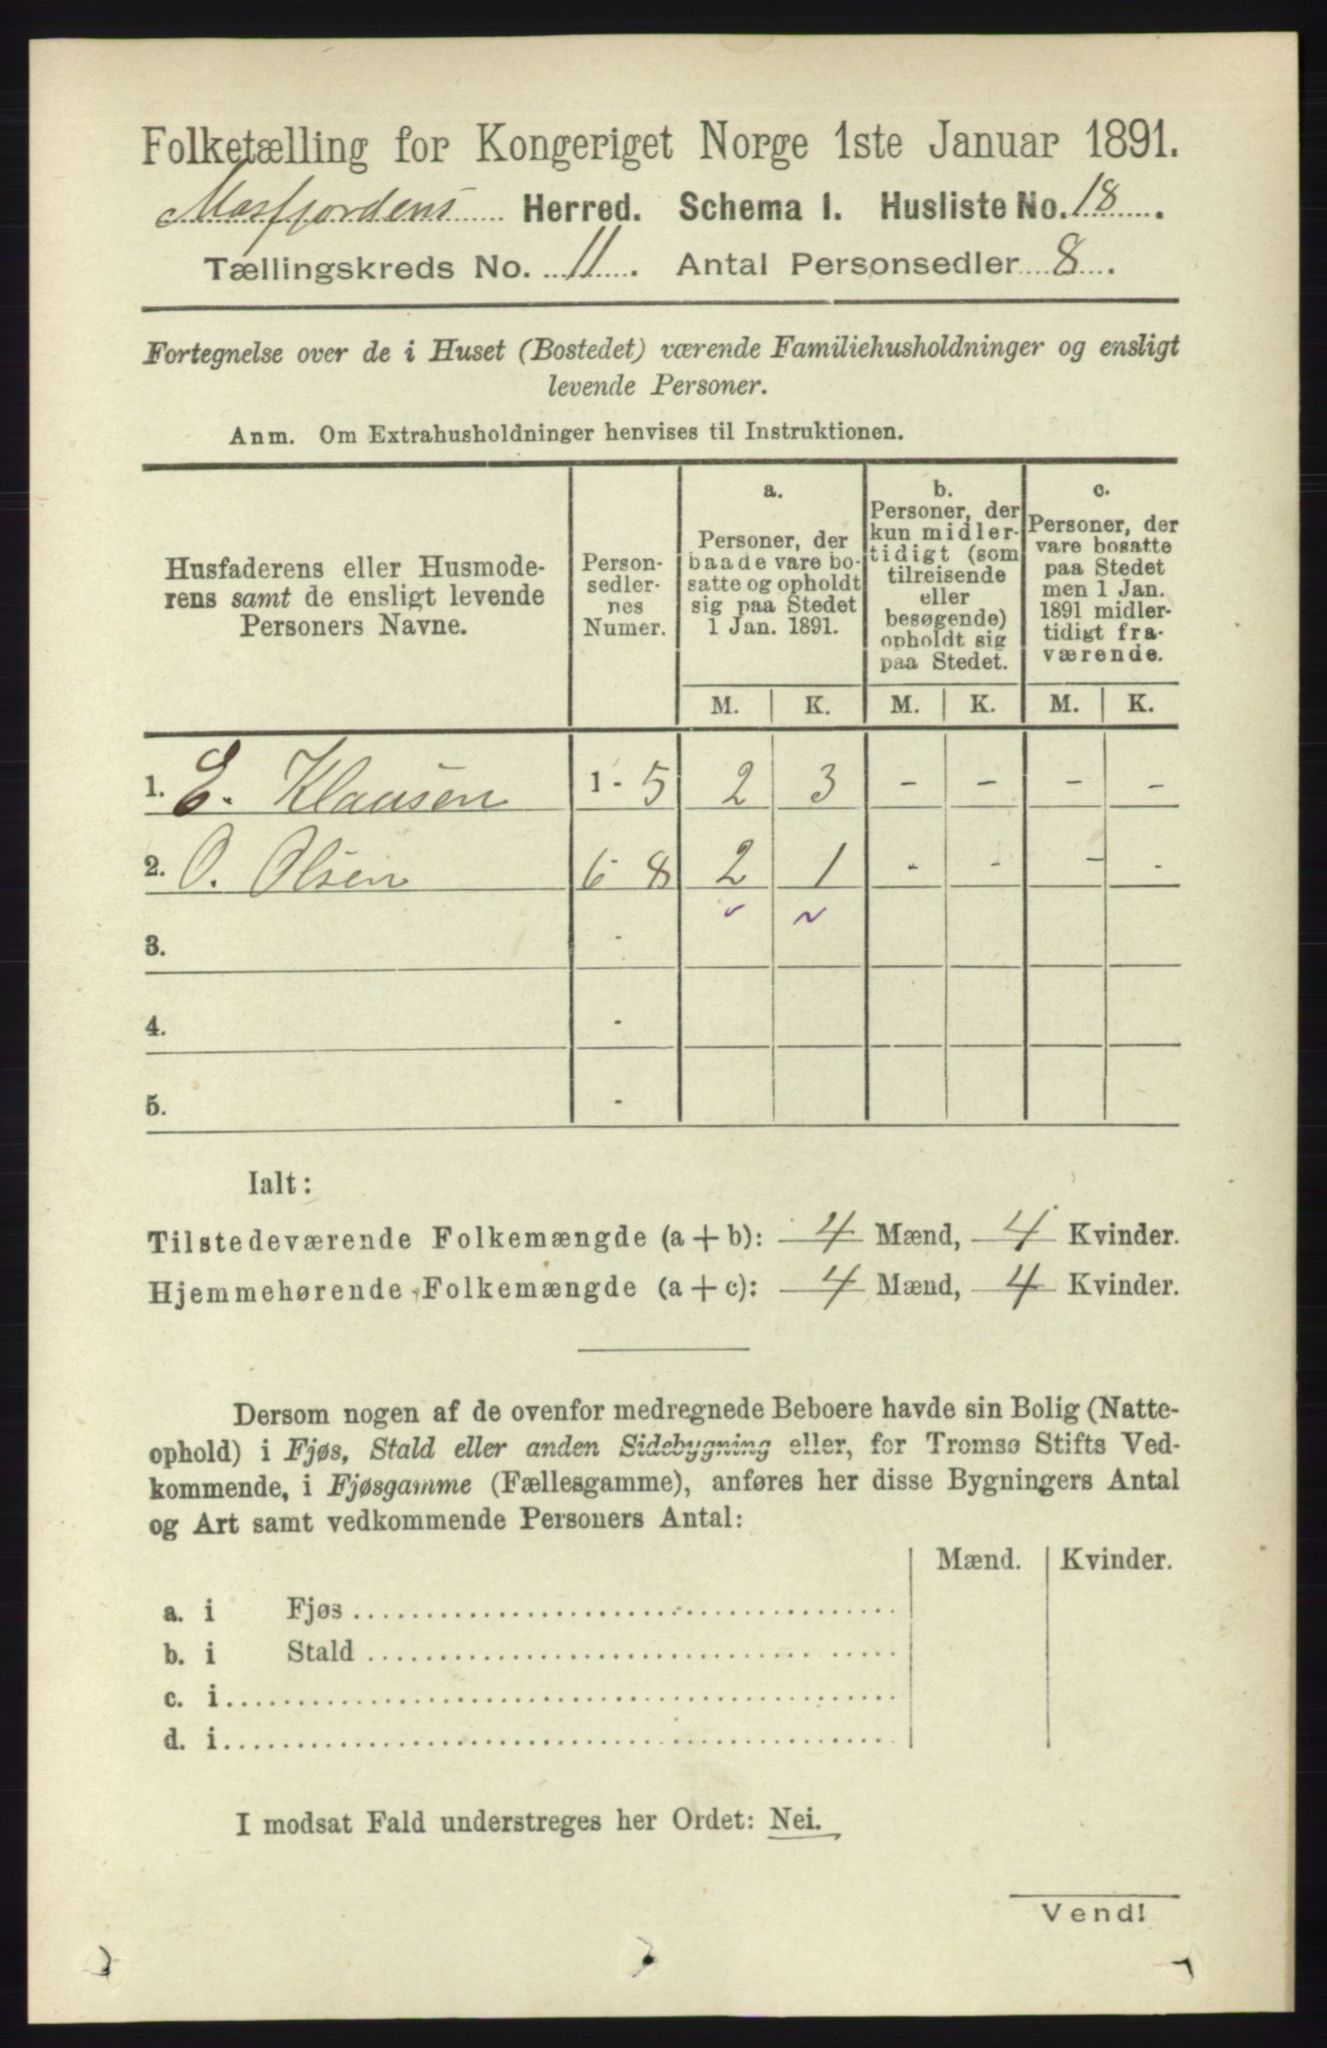 Folketælling for Kongeriget Norge 1ste Januar 1891.
Masfjordens Herred. Schema 1. Husliste No. 18.
Tællingskreds No. 11. Antal Personsedler 8.
Fortegnelse over de i Huset (Bostedet) værende Familiehusholdninger og ensligt
levende Personer.
Anm. Om Extrahusholdninger henvises til Instruktionen.
Husfaderens eller Husmode-
rens samt de ensligt levende
Personers Navne.
Person-
sedler-
nes
Numer.
a.
Personer, der
baade vare bo-
satte og opholdt
sig paa Stedet
1 Jan. 1891.
b.
Personer, der
kun midler-
tidigt (som
tilreisende
eller
besøgende)
opholdt sig
paa Stedet.
c.
Personer, der
vare bosatte
paa Stedet
men 1 Jan.
1891 midler-
tidigt fra-
værende.
M. K. M. K. M. K.
1. E. Klausen 1-5 2 3 - - - -
2. O. Olsen 6-8 2 1 - - - -
3. -
4. -
5. -
Ialt:
Tilstedeværende Folkemængde (a + b): 4 Mænd, 4 Kvinder.
Hjemmehørende Folkemængde (a + c): 4 Mænd, 4 Kvinder.
Dersom nogen af de ovenfor medregnede Beboere havde sin Bolig (Natte-
ophold) i Fjøs, Stald eller anden Sidebygning eller, for Tromsø Stifts Ved-
kommende, i Fjøsgamme (Fællesgamme), anføres her disse Bygningers Antal
og Art samt vedkommende Personers Antal:
Mænd. Kvinder.
a. i Fjøs
b. i Stald
c. i
d. i
I modsat Fald understreges her Ordet: Nei.
Vend!